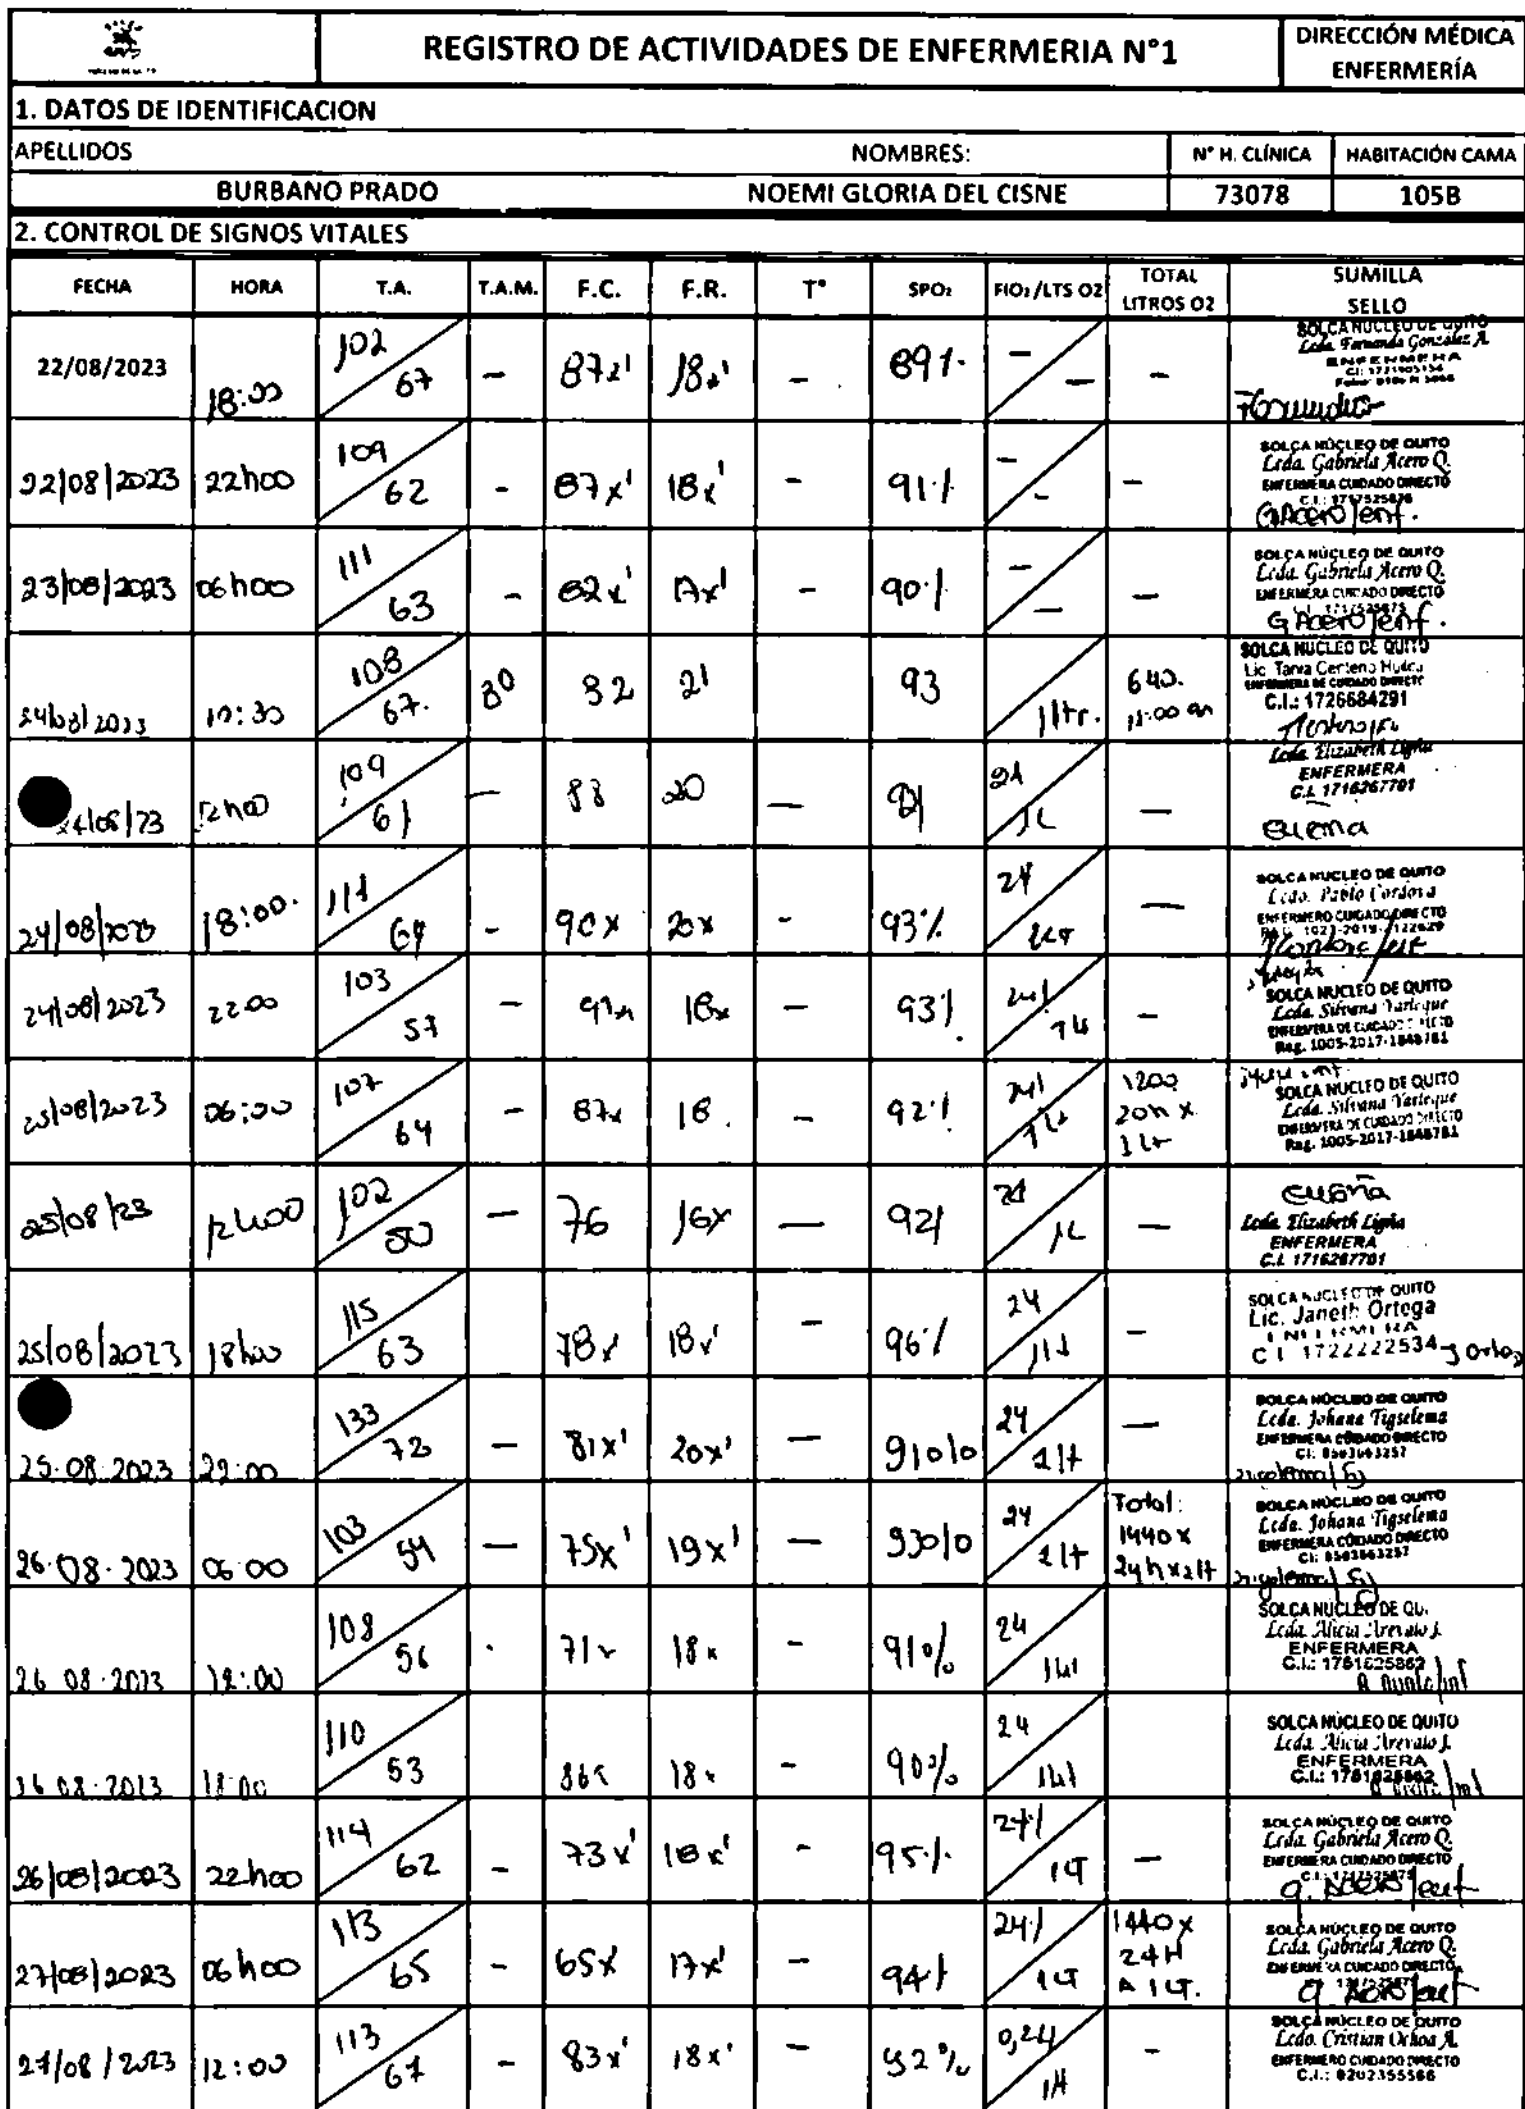 REGISTRO DE ACTIVIDADES DE ENFERMERIA N°1
DIRECCIÓN MÉDICA
ENFERMERÍA
1. DATOS DE IDENTIFICACION
APELLIDOS NOMBRES: N° H. CLÍNICA HABITACIÓN CAMA
BURBANO PRADO NOEMI GLORIA DEL CISNE 73078 105B
2. CONTROL DE SIGNOS VITALES
FECHA HORA T.A. T.A.M. F.C. F.R. T° SPO₂ FIO₂/LTS O2 TOTAL LITROS O2 SUMILLA SELLO
22/08/2023 18:00 102/67 - 87x' 18x' - 89% -/- -
SOLCA NUCLEO DE QUITO
Lcda. Fernanda González A.
ENFERMERA
22/08/2023 22h00 109/62 - 87x' 18x' - 91% -/- -
SOLCA NÚCLEO DE QUITO
Lcda. Gabriela Acero Q.
ENFERMERA CUIDADO DIRECTO
GAcero/enf.
23/08/2023 06h00 111/63 - 82x' 17x' - 90% -/- -
SOLCA NÚCLEO DE QUITO
Lcda. Gabriela Acero Q.
ENFERMERA CUIDADO DIRECTO
GAcero/enf.
24/08/2023 10:30 108/67. 80 92 21 93 1ltr. 640.
SOLCA NUCLEO DE QUITO
Lic. Tania Centeno
ENFERMERA DE CUIDADO DIRECTO
C.I.: 1726684291
24/08/23 12h00 109/61 - 88 20 - 91 24/1L -
Lcda. Elizabeth Ligña
ENFERMERA
C.I. 1716267701
24/08/2023 18:00. 111/64 - 90x 20x - 93% 24 -
SOLCA NUCLEO DE QUITO
Lcdo. Pablo Cordova
ENFERMERO CUIDADO DIRECTO
24/08/2023 22:00 103/57 - 18x - 93% 24% -
SOLCA NUCLEO DE QUITO
Lcda. Silvana Yanleque
ENFERMERA DE CUIDADO DIRECTO
Reg. 1005-2017-1848781
25/08/2023 06:00 107/64 - 87x 18. - 92% 24%/1Lt 1200 20h x 1Lt
SOLCA NUCLEO DE QUITO
Lcda. Silvana Yanleque
ENFERMERA DE CUIDADO DIRECTO
Reg. 1005-2017-1848781
25/08/23 12h00 102/50 - 76 16x - 92% 24/1L -
Lcda. Elizabeth Ligña
ENFERMERA
C.I. 1716267701
25/08/2023 18h00 115/63 78x' 18x' - 96% 24/1lt -
SOLCA NUCLEO DE QUITO
Lic. Janeth Ortega
ENFERMERA
C I 1722222534
25.08.2023 22:00 133/72 - 81x' 20x' - 91o/o 24/1lt -
SOLCA NÚCLEO DE QUITO
Lcda. Johana Tigselema
ENFERMERA CUIDADO DIRECTO
26.08.2023 06:00 103/54 - 75x' 19x' - 93o/o 24/1lt Total: 1440 x 24h x 1lt
SOLCA NÚCLEO DE QUITO
Lcda. Johana Tigselema
ENFERMERA CUIDADO DIRECTO
26.08.2023 12:00 108/56 . 71x 18x - 91% 24/1lt
SOLCA NUCLEO DE QU.
Lcda. Alicia Arevalo J.
ENFERMERA
26.08.2023 18:00 110/53 86x 18x - 90% 24/1lt
SOLCA NUCLEO DE QUITO
Lcda. Alicia Arevalo J.
ENFERMERA
26/08/2023 22h00 114/62 - 73x' 18x' - 95% 24%/1LT -
SOLCA NÚCLEO DE QUITO
Lcda. Gabriela Acero Q.
ENFERMERA CUIDADO DIRECTO
G. Acero/enf
27/08/2023 06h00 113/65 - 65x' 17x' - 94% 24%/1LT 1440 x 24H A 1LT.
SOLCA NÚCLEO DE QUITO
Lcda. Gabriela Acero Q.
ENFERMERA CUIDADO DIRECTO
G. Acero/enf
27/08/2023 12:00 113/67 - 83x' 18x' - 92% 0,24/1lt -
SOLCA NÚCLEO DE QUITO
Lcdo. Cristian Ochoa A.
ENFERMERO CUIDADO DIRECTO
C.I.: 0202355566